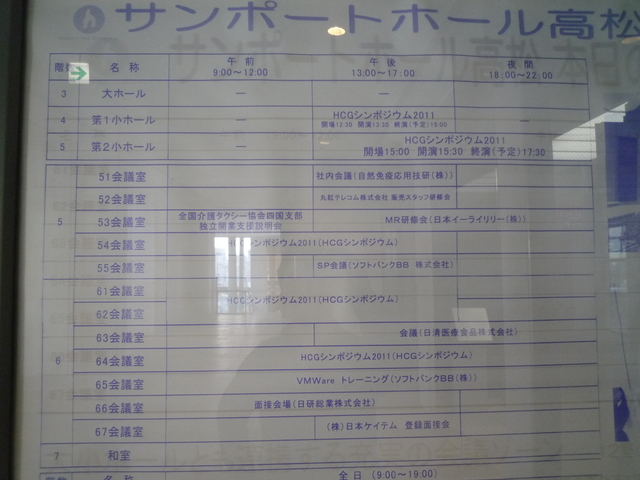 サンポートホール高松
階 名 称 午 前 午 後 夜 間
9:00～12:00 13:00～17:00 18:00～22:00
3 大ホール ― ― ―
4 第1小ホール ― HCGシンポジウム2011 ―
開場12:30 開演13:30 終演(予定)15:00
5 第2小ホール ― HCGシンポジウム2011
開場15:00 開演15:30 終演(予定)17:30
51会議室 社内会議(自然免疫応用技研(株))
52会議室 丸紅テレコム株式会社 販売スタッフ研修会
5 53会議室 全国介護タクシー協会四国支部 MR研修会(日本イーライリリー(株))
独立開業支援説明会
54会議室 HCGシンポジウム2011(HCGシンポジウム)
55会議室 SP会議(ソフトバンクBB 株式会社)
61会議室
HCGシンポジウム2011(HCGシンポジウム)
62会議室
63会議室 会議(日清医療食品株式会社)
6 64会議室 HCGシンポジウム2011(HCGシンポジウム)
65会議室 VMWare トレーニング(ソフトバンクBB(株))
66会議室 面接会場(日研総業株式会社)
67会議室 (株)日本ケイテム 登録面接会
7 和室
階数 名 称 全 日 (9:00～19:00)